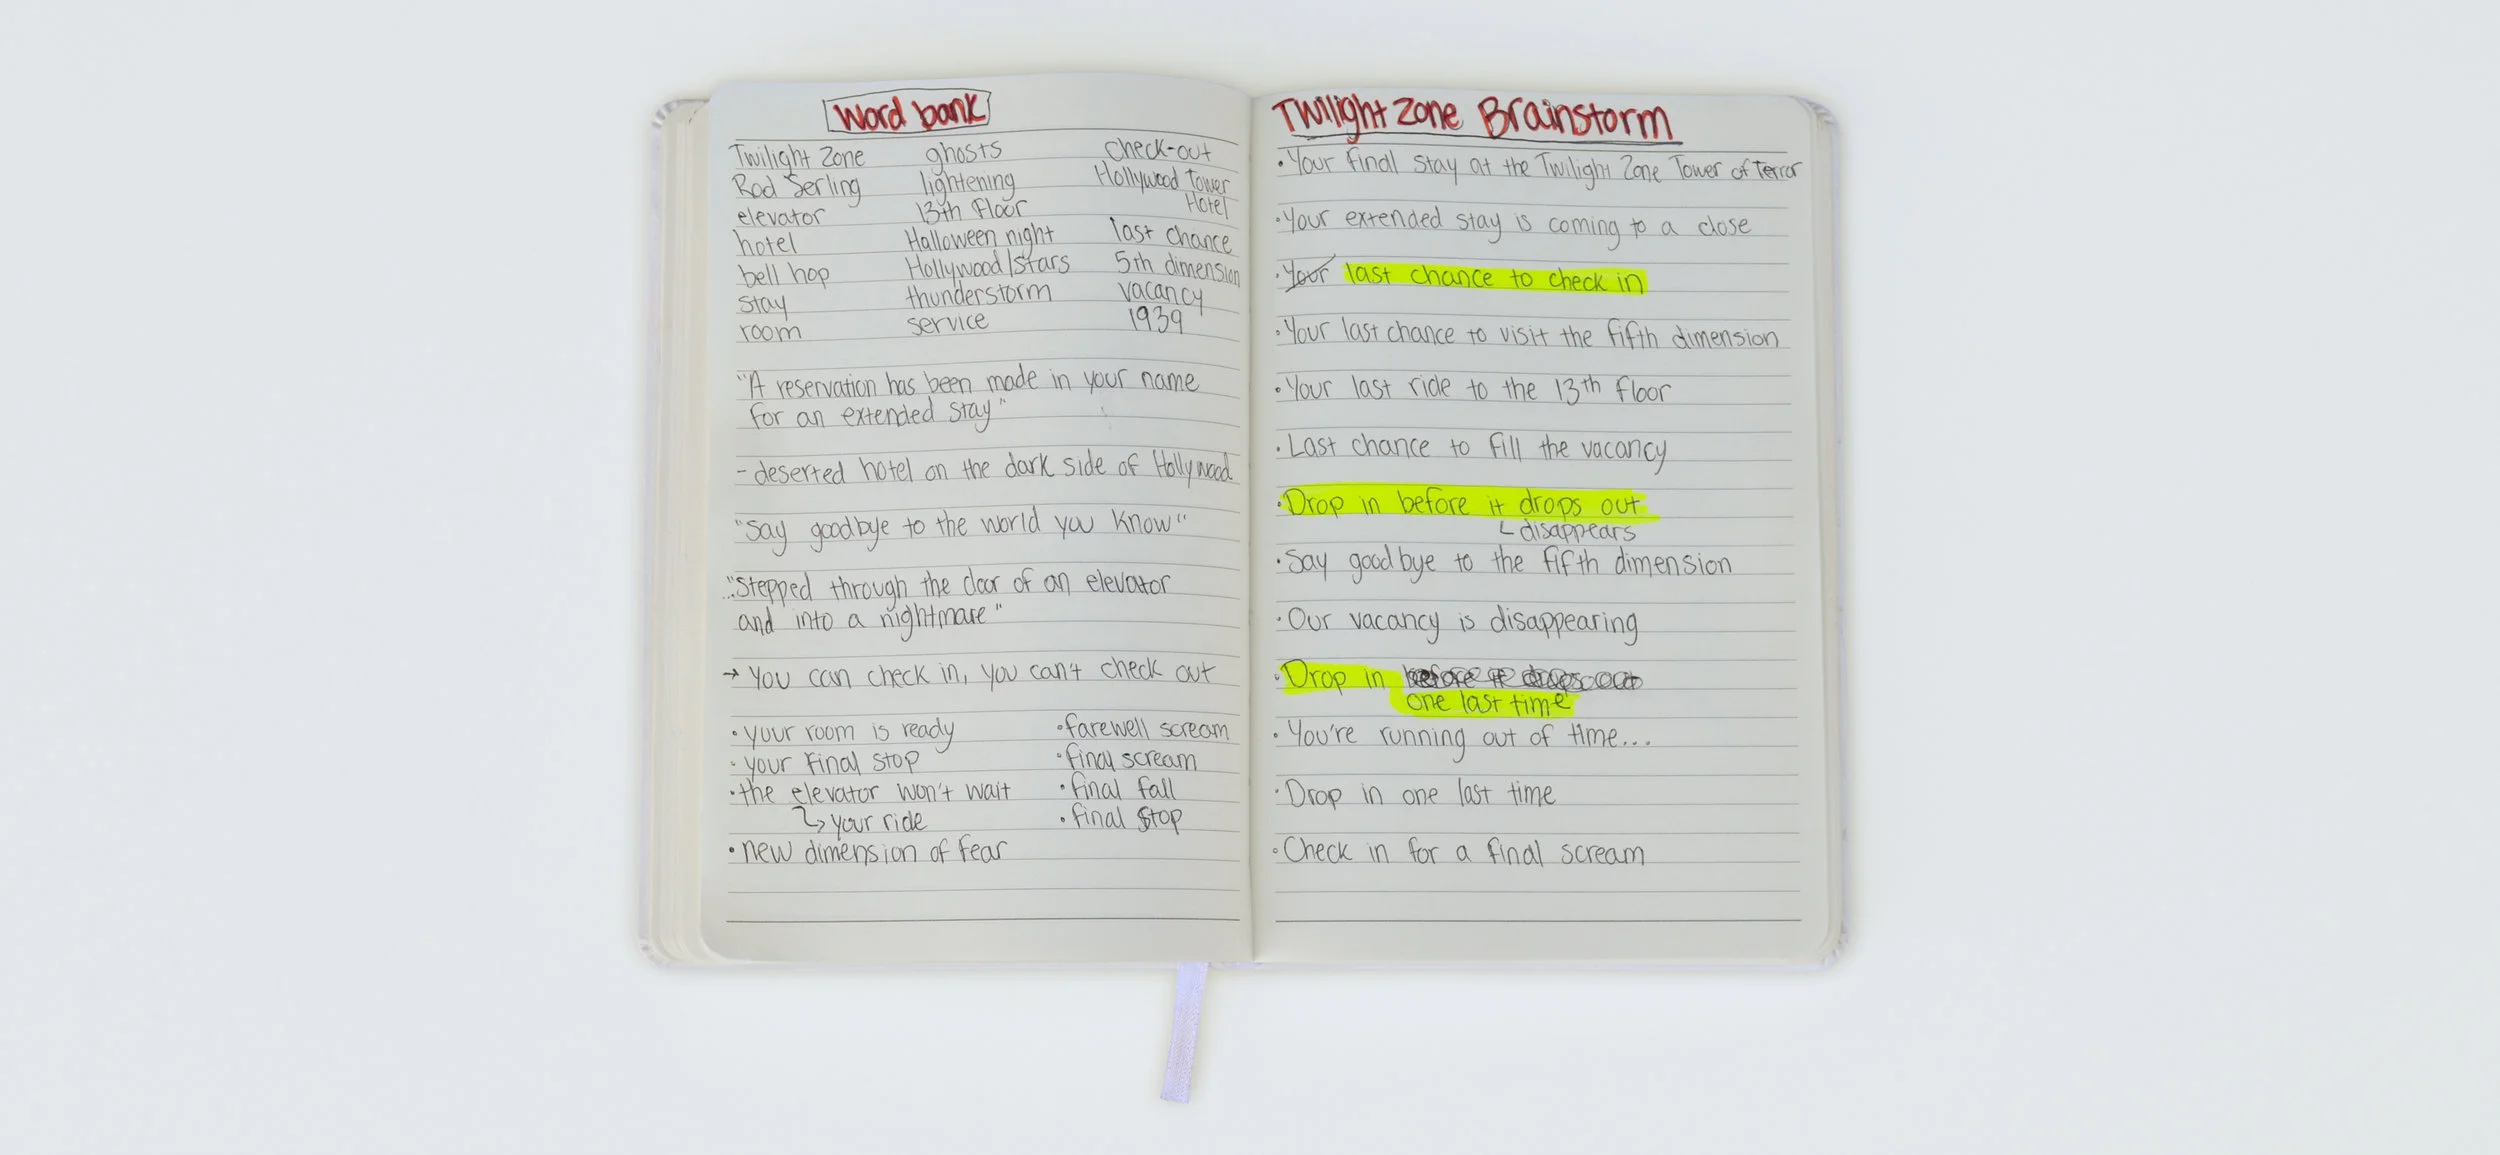 Word bank
Twilight Zone ghosts check-out
Rod Serling lightening Hollywood Tower
Hotel
elevator 13th Floor
hotel Halloween night last chance
bell hop Hollywood/stars 5th dimension
stay thunderstorm vacancy
room service 1939
"A reservation has been made in your name
for an extended stay"
- deserted hotel on the dark side of Hollywood
"Say goodbye to the world you know"
"...Stepped through the door of an elevator
and into a nightmare"
→ You can check in, you can't check out
• your room is ready • farewell scream
• your final stop • final scream
• the elevator won't wait • final fall
↳ your ride • final stop
• new dimension of fear
Twilight Zone Brainstorm
• Your final stay at the Twilight Zone Tower of Terror
• Your extended stay is coming to a close
• Your last chance to check in
• Your last chance to visit the fifth dimension
• Your last ride to the 13th floor
• Last chance to fill the vacancy
• Drop in before it drops out
└ disappears
• Say goodbye to the fifth dimension
• Our vacancy is disappearing
• Drop in before it drops out
one last time
• You're running out of time...
• Drop in one last time
• Check in for a final scream